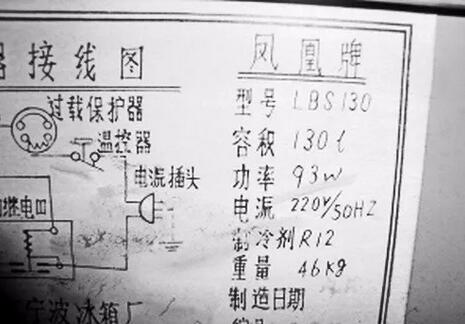 器接线图
过载保护器
温控器
电源插头
继电
宁波冰箱厂
凤凰牌
型号 LBS130
容积 130l
功率 93W
电源 220V/50HZ
制冷剂 R12
重量 46Kg
制造日期